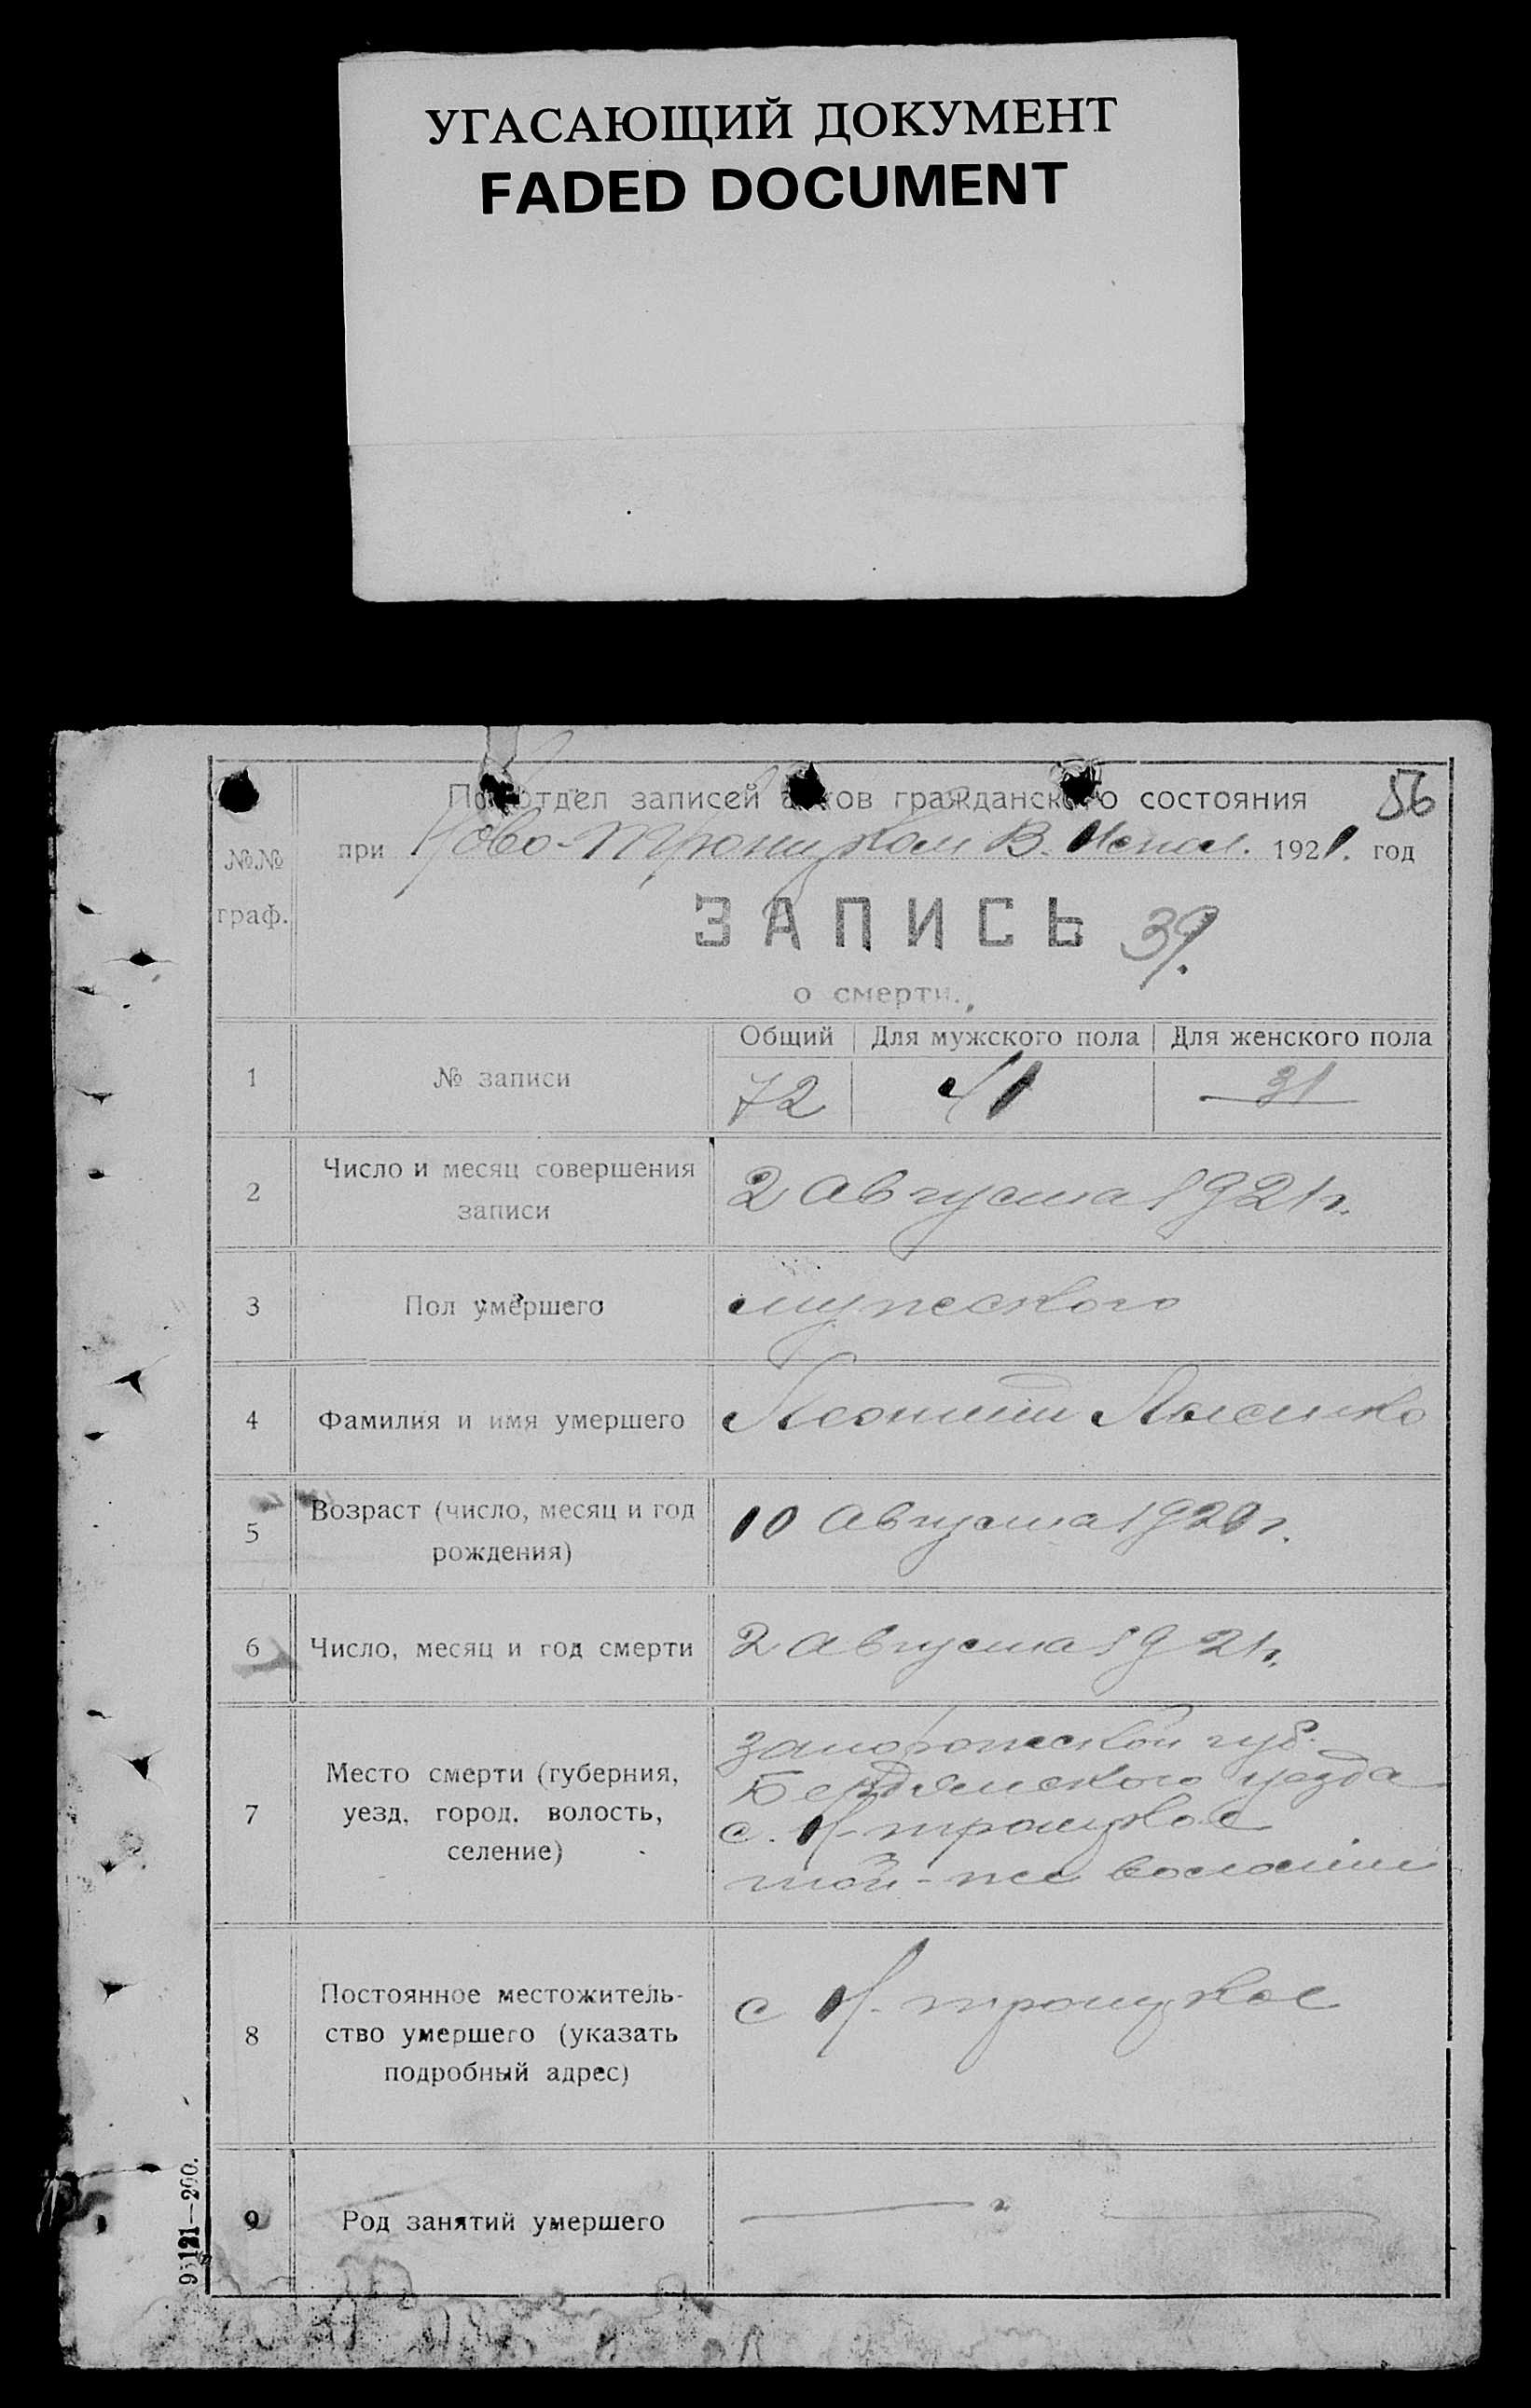 УГАСАЮЩИЙ ДОКУМЕНТ
FADED DOCUMENT
56
Подотдел записей актов гражданского состояния
при Ново-Троицком В. Испол. 1921. год
№.№
граф.
ЗАПИСЬ 39.
о смерти.
Общий Для мужского пола Для женского пола
1 № записи 72 41 31
2 Число и месяц совершения
записи
2 Августа 1921 г.
3 Пол умершего мужеского
4 Фамилия и имя умершего Леонтий Лысенко
5 Возраст (число, месяц и год
рождения)
10 Августа 1920 г.
6 Число, месяц и год смерти 2 Августа 1921 г.
7 Место смерти (губерния,
уезд, город, волость,
селение)
Запорожской губ.
Бердянского уезда
с. Н-Троицкое
той-же волости
8 Постоянное местожитель-
ство умершего (указать
подробный адрес)
с Н. Троицкое
9 Род занятий умершего